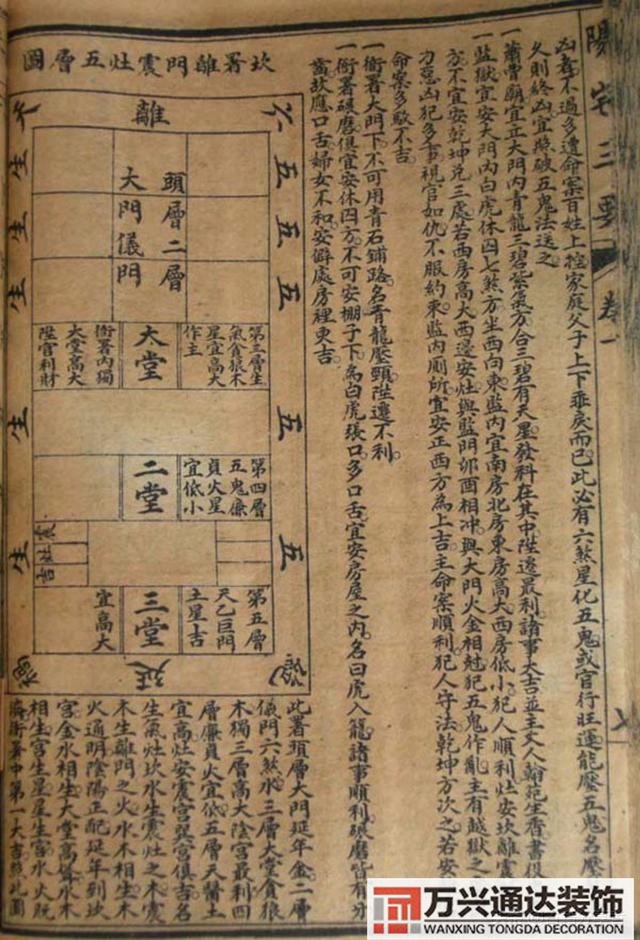 陽宅三要 卷一
凶毒不過多遭命案百姓上控家庭父子上下乖戾而已此必有六煞星化五鬼或官行旺運能壓五鬼名壓
久則終凶宜照破五鬼法送之
一蕭曹廟宜立大門內青龍三碧紫氣方合三碧有天星發科在其中陞遷最利諸事大吉並主文人翰苑生香書役
一監獄宜安大門內白虎休囚七煞方坐西向東監內宜南房北房東房高大西房低小犯人順利灶安坎離震
方不宜安乾坤兌三處若西房高大西邊安灶與監門卯酉相冲與大門火金相尅犯五鬼作亂主有越獄之
力惡凶犯多事視官如仇不服約束監內廁所宜安正西方為上吉主命案順利犯人守法乾坤方次之若安
命案多駁不吉
一衙署大門下不可用青石鋪路名青龍壓頸陞遷不利
一衙署碾磨俱宜安休囚方不可安棚子下為白虎張口多口舌宜安房屋之內名曰虎入籠諸事順利碾磨皆有分
齒故應口舌婦女不和安僻處房裡更吉
坎署離門震灶五層圖
離
五 五 五 五 五
生 生 生 生 生
頭層二層
大門儀門
第三層生
氣貪狼木
星宜高大
作主
大堂
衙署內獨
大堂高大
陞官利財
第四層
五鬼廉
貞火星
宜低小
二堂
震灶吉
第五層
天乙巨門
土星吉
三堂
宜高大
延
此署頭層大門延年金二層
儀門六煞水三層大堂貪狼
木獨三層高大陰宮最利四
層廉貞火宜低五層天醫土
宜高灶安震宮巽宮俱吉名
生氣灶坎水生震灶之木震
木生離門之火水木相生木
火通明陰陽正配延年到坎
宮金水相生大堂高聳水木
相生宮生星星生宮水火既
濟衙署中第一大吉照此圖
万兴通达装饰
WANXING TONGDA DECORATION